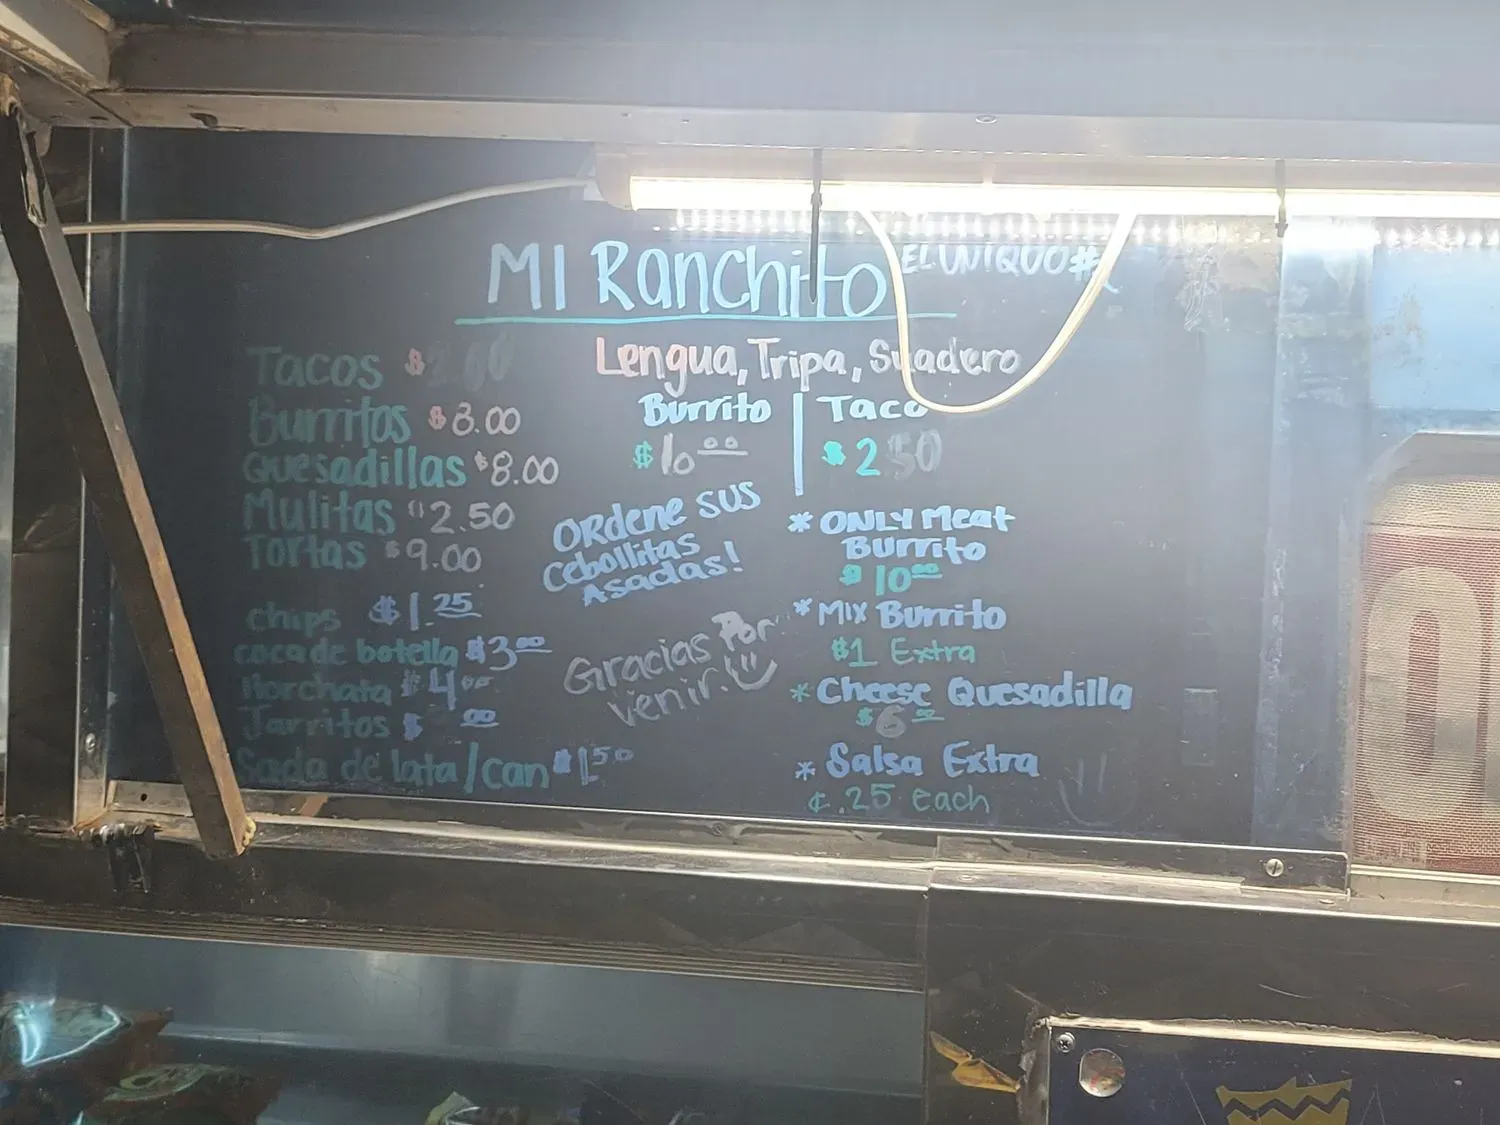 MI Ranchito
EL UNIQUO #
Tacos $2.00
Burritos $8.00
Quesadillas $8.00
Mulitas $2.50
Tortas $9.00
chips $1.25
coca de botella $3.00
Horchata $4.00
Jarritos $ .00
Soda de lata/can $1.50
Lengua, Tripa, Suadero
Burrito | Taco
$10.00 | $2.50
ORdene sus
Cebollitas
Asadas!
Gracias Por
venir!
* ONLY Meat
Burrito
$10.00
* MIX Burrito
$1 Extra
* Cheese Quesadilla
$6.00
* Salsa Extra
¢.25 each